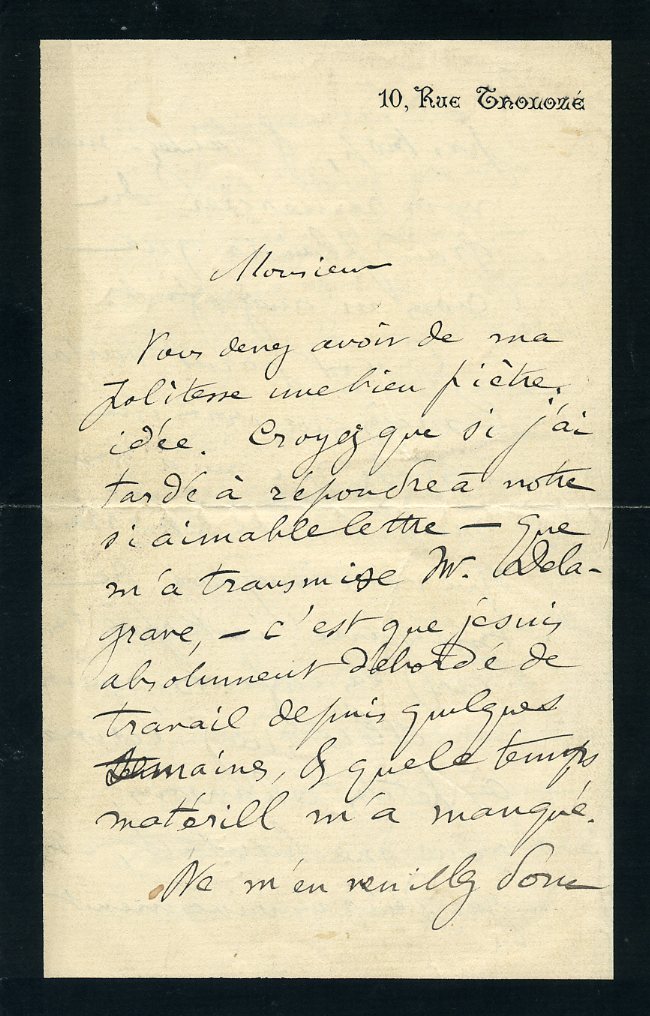 10, Rue Tholozé
Monsieur
Vous devez avoir de ma
politesse une bien piètre
idée. Croyez que si j'ai
tardé à répondre à votre
si aimable lettre — que
m'a transmise Mr. Dela-
grave, — c'est que je suis
absolument débordé de
travail depuis quelques
semaines, & que le temps
matériel m'a manqué.
Ne m'en veuillez donc